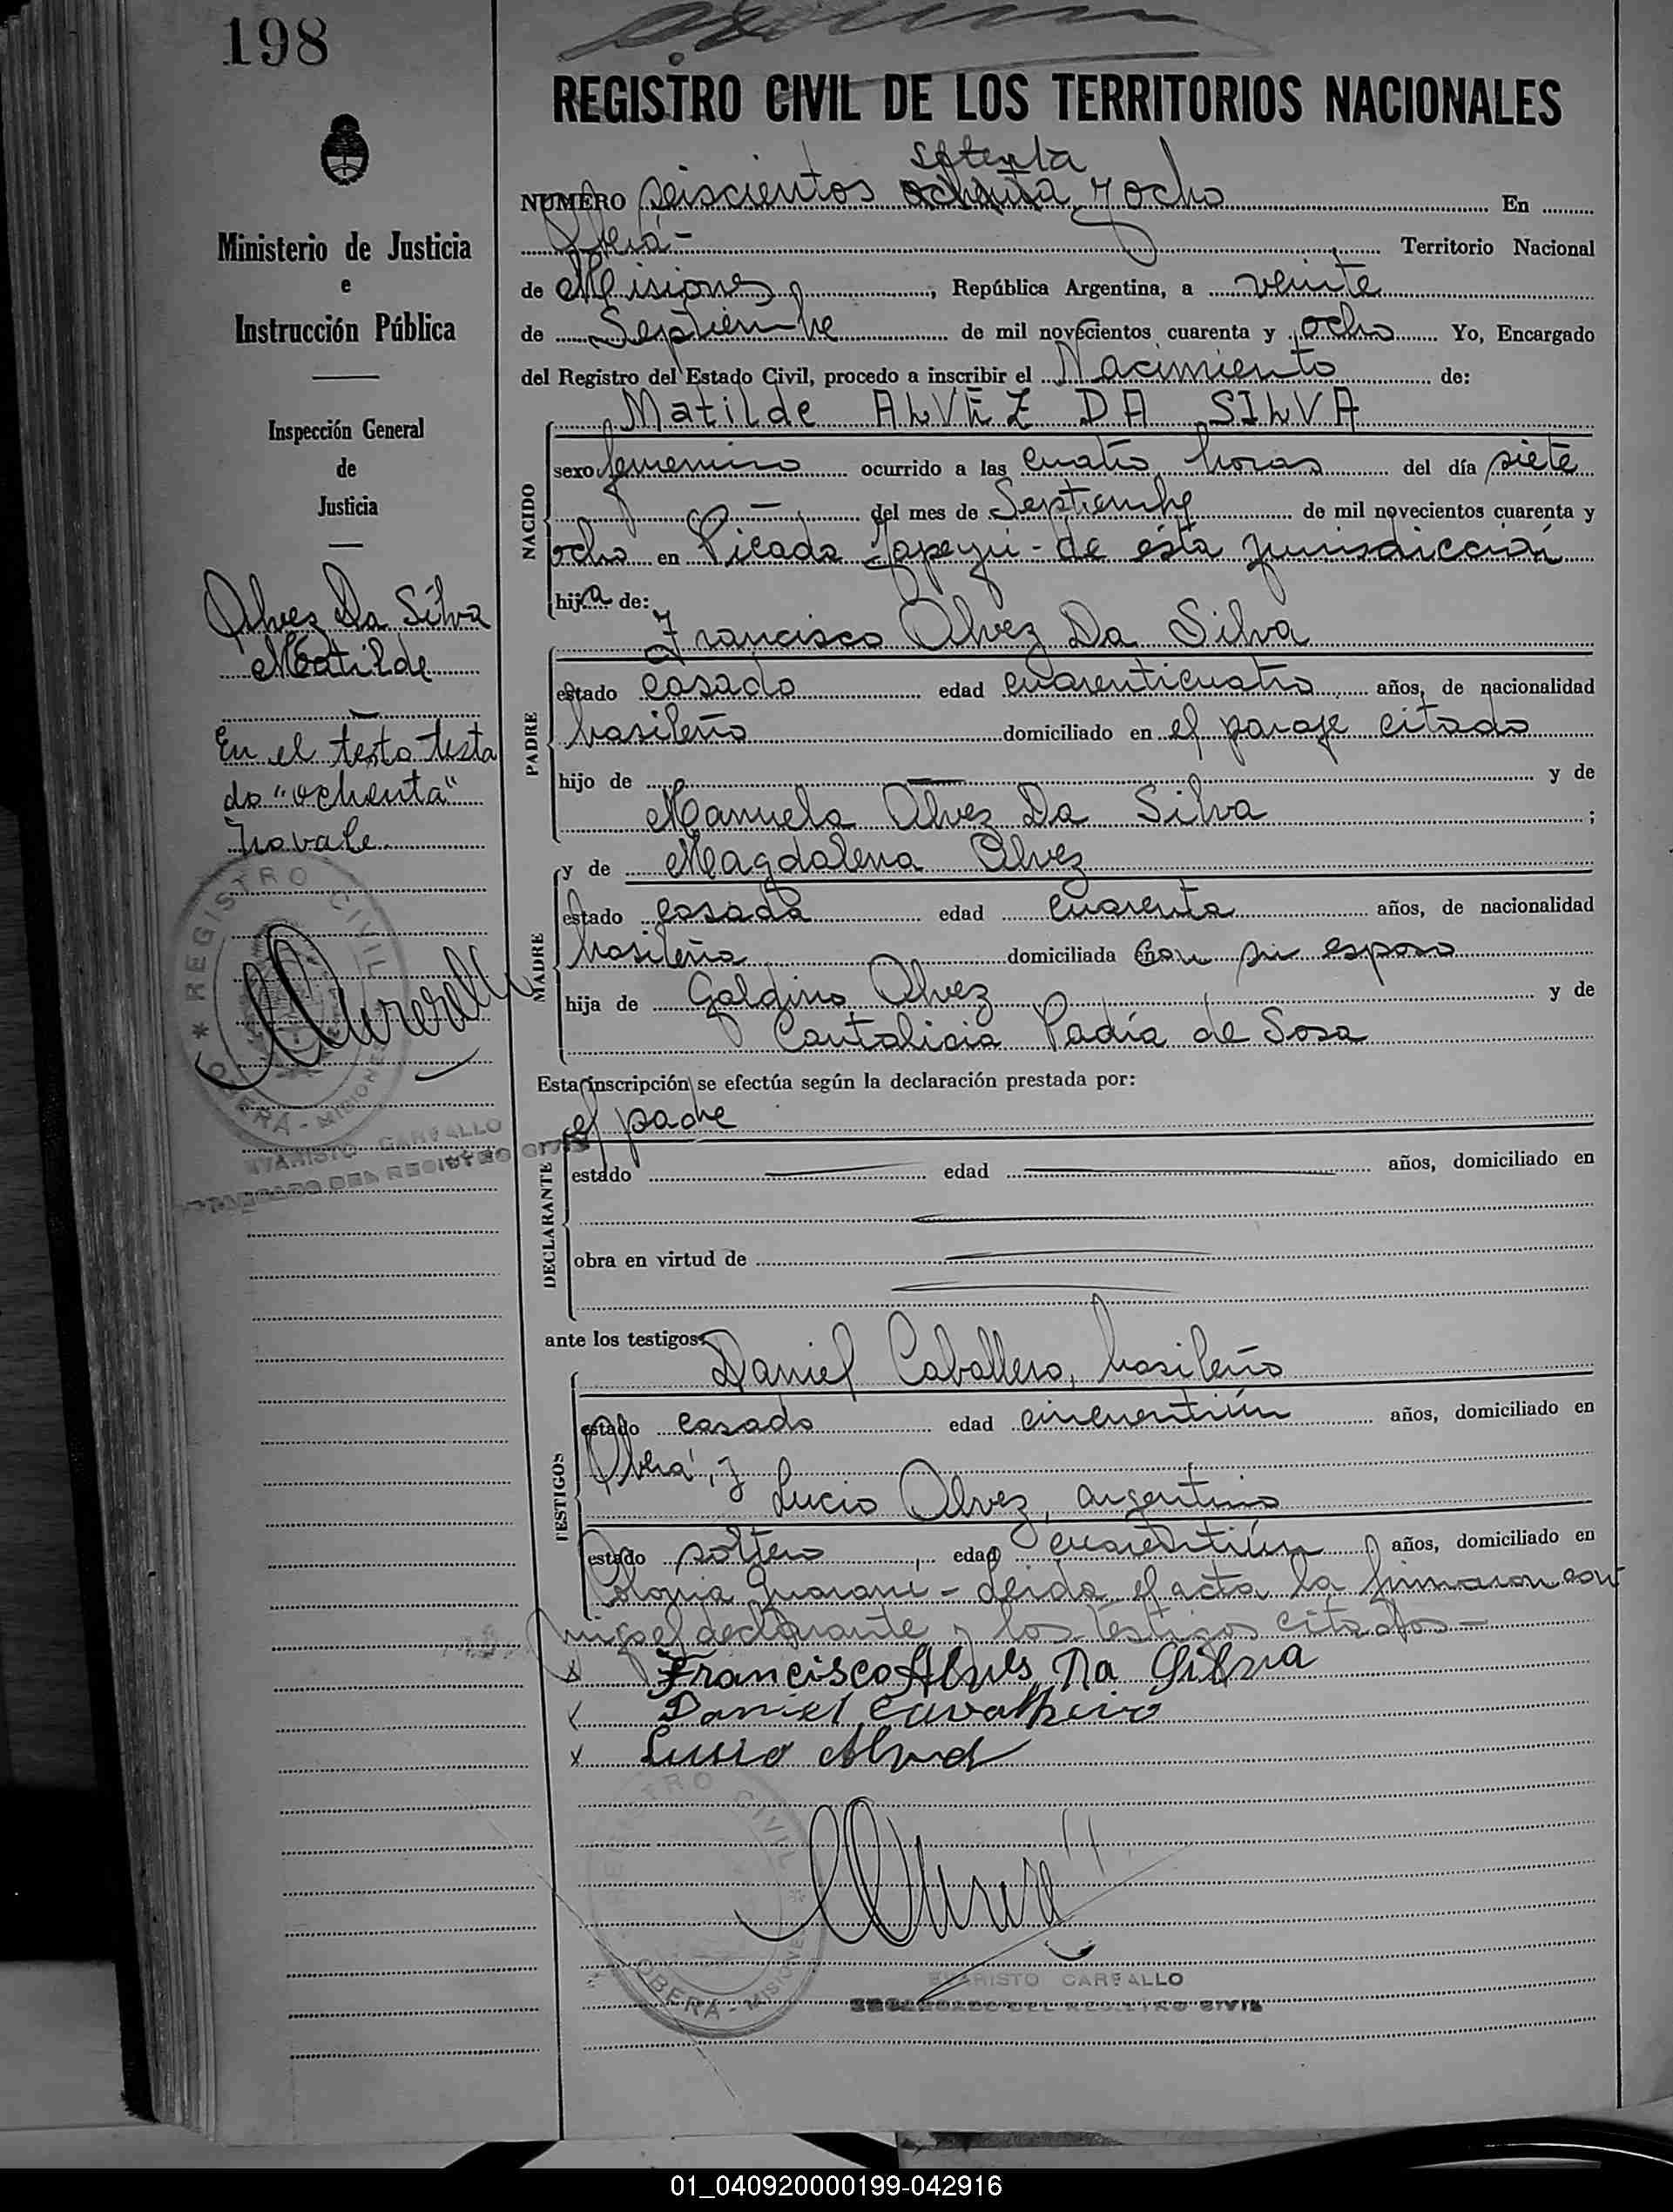 198
REGISTRO CIVIL DE LOS TERRITORIOS NACIONALES
Ministerio de Justicia
e
Instrucción Pública
Inspección General
de
Justicia
Alvez Da Silva
Matilde
En el texto testa
do "ochenta"
no vale.
REGISTRO CIVIL
OBERÁ - MISIONES
EVARISTO CARVALLO
ENCARGADO DEL REGISTRO CIVIL
setenta
NUMERO seiscientos ochenta y ocho En
Oberá - Territorio Nacional
de Misiones, República Argentina, a veinte
de Septiembre de mil novecientos cuarenta y ocho Yo, Encargado
del Registro del Estado Civil, procedo a inscribir el Nacimiento de:
Matilde ALVEZ DA SILVA
NACIDO
sexo femenino ocurrido a las cuatro horas del día siete
del mes de Septiembre de mil novecientos cuarenta y
ocho en Picada Yapeyú - de ésta jurisdicción
hija de:
Francisco Alvez Da Silva
PADRE
estado casado edad cuarenticuatro años, de nacionalidad
brasileño domiciliado en el paraje citado
hijo de y de
Manuela Alvez Da Silva ;
MADRE
y de Magdalena Alvez
estado casada edad cuarenta años, de nacionalidad
brasileña domiciliada con su esposo
hija de Galdino Alvez y de
Cantalicia Padía de Sosa
Esta inscripción se efectúa según la declaración prestada por:
el padre
DECLARANTE
estado edad años, domiciliado en
obra en virtud de
ante los testigos:
Daniel Caballero, brasileño
TESTIGOS
estado casado edad cincuentiún años, domiciliado en
Oberá, y
Lucio Alvez, argentino
estado soltero, edad cuarentiún años, domiciliado en
Colonia Guaraní - Leída el acta la firmaron con
migo el declarante y los testigos citados -
x Francisco Alves Da Silva
Daniel Cavalheiro
x Lusio
REGISTRO CIVIL
OBERÁ - MISIONES
EVARISTO CARVALLO
ENCARGADO DEL REGISTRO CIVIL
01_040920000199-042916